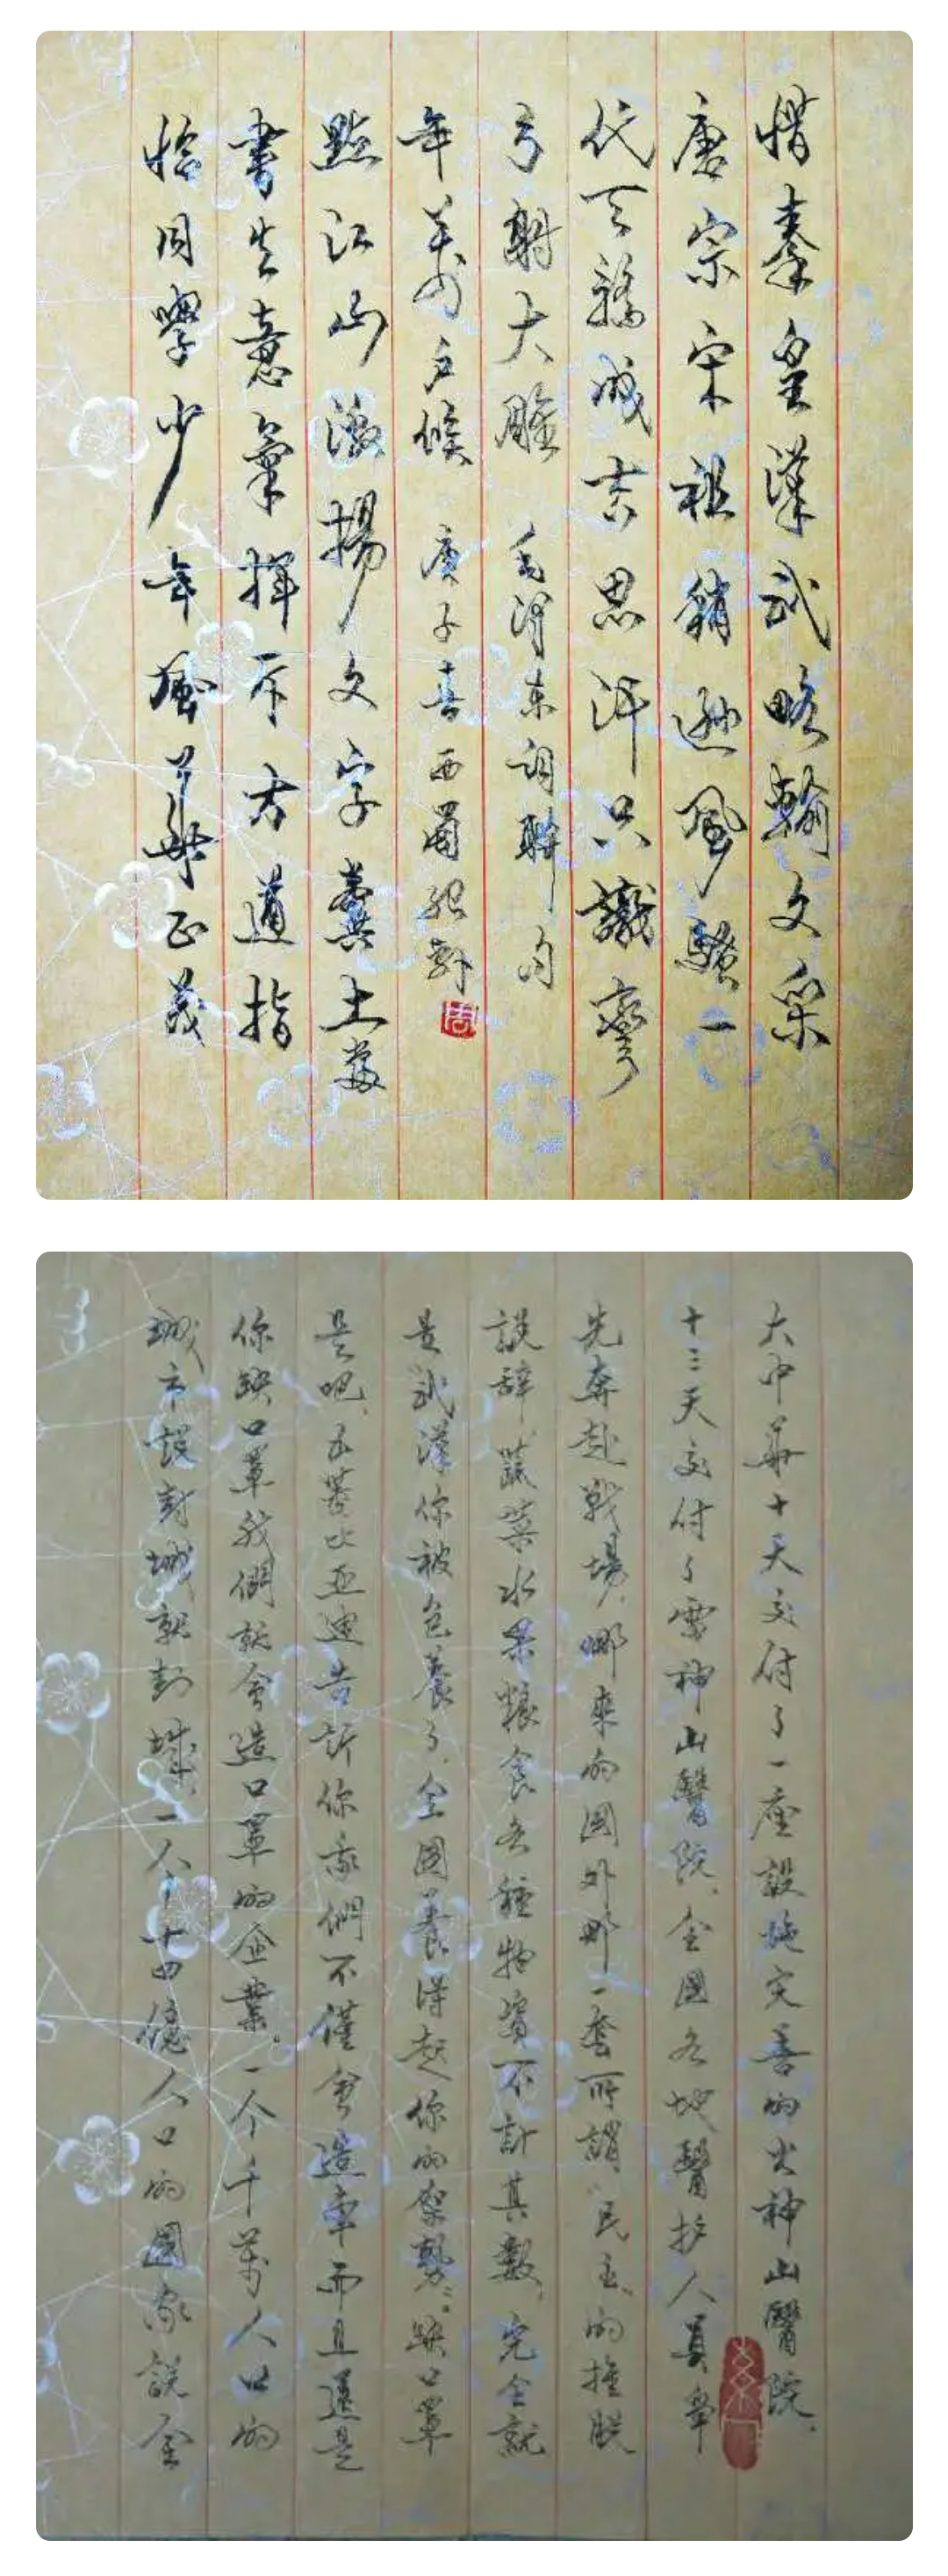 惜秦皇漢武略輸文采
唐宗宋祖稍遜風騷一
代天驕成吉思汗只識彎
弓射大雕 毛澤東詞聯句
年萬戶侯 庚子春西蜀
點江山激揚文字糞土當
書生意氣揮斥方遒指
恰同學少年風華正茂
周
大中華十天交付了一座設施完善的火神山醫院，
十三天交付了雷神山醫院，全國各地醫护人員争
先奔赴戰場，哪來的國外那一套所謂“民主”的推脱
説辞，蔬菜水果粮食各種物資不計其數，完全就
是武漢你被包養了，全國養得起你的架勢…缺口罩
是吧，五菱比亚迪告訴你我們不僅會造車而且還是
你缺口罩我們就會造口罩的企業。一个千萬人口的
城市説封城就封城，一个十四億人口的國家説全